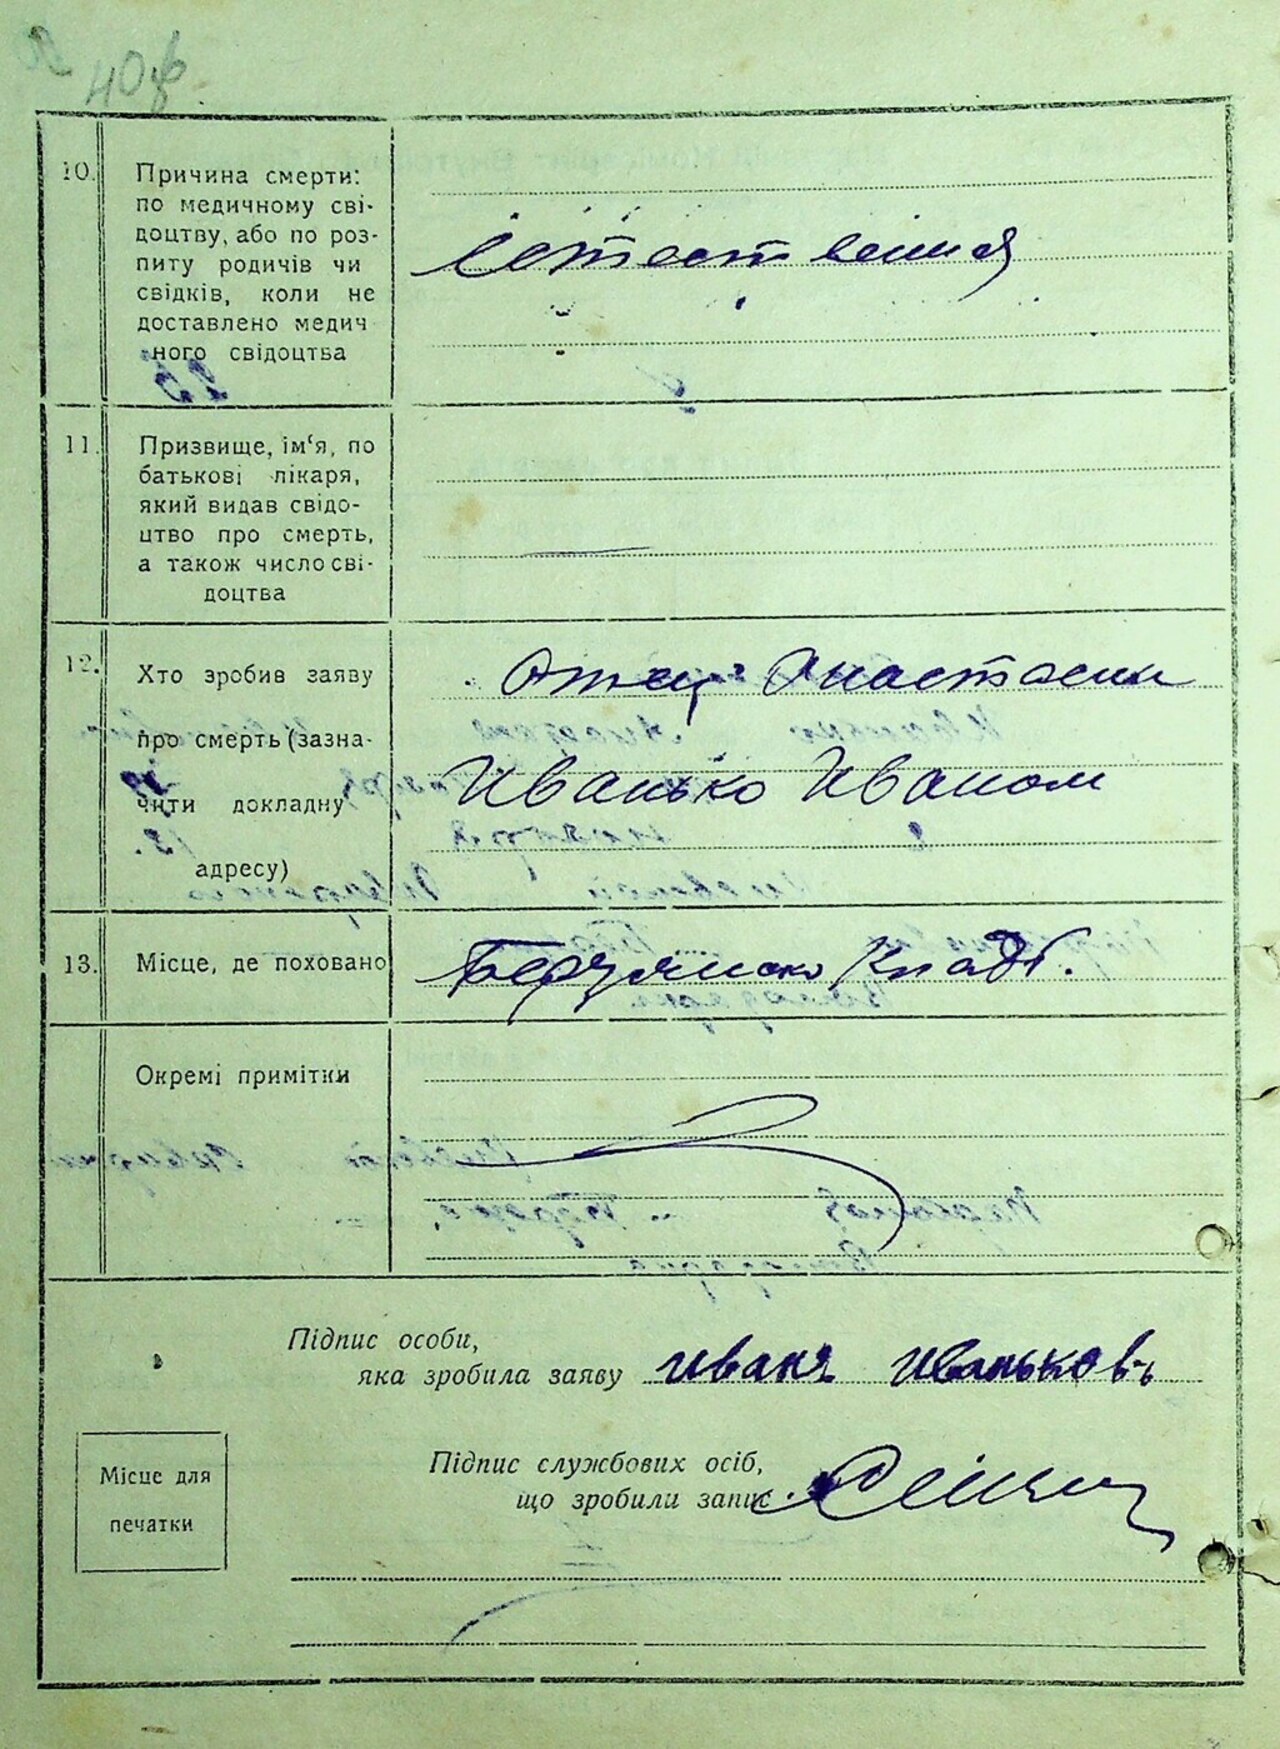 40
10. Причина смерти:
по медичному сві-
доцтву, або по роз-
питу родичів чи
свідків, коли не
доставлено медич
ного свідоцтва
Естественая
11. Призвище, ім‘я, по
батькові лікаря,
який видав свідо-
цтво про смерть,
а також число сві-
доцтва
12. Хто зробив заяву
про смерть (зазна-
чити докладну
адресу)
Отец Анастасии
Иванько Иваном
13. Місце, де поховано
Кладб.
Окремі примітки
Підпис особи,
яка зробила заяву Иванъ Иваньковъ
Підпис службових осіб,
що зробили запис
Місце для
печатки